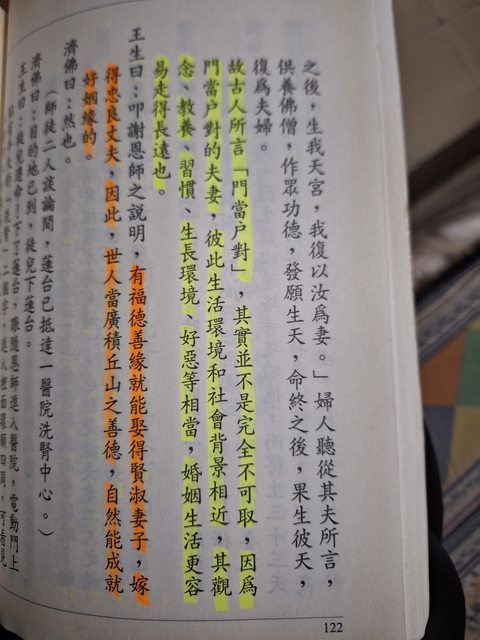 之後，生我天宮，我復以汝為妻。」婦人聽從其夫所言，
供養佛僧，作眾功德，發願生天，命終之後，果生彼天，
復為夫婦。
故古人所言「門當戶對」，其實並不是完全不可取，因為
門當戶對的夫妻，彼此生活環境和社會背景相近，其觀
念、教養、習慣、生長環境、好惡等相當，婚姻生活更容
易走得長遠也。
王生曰：叩謝恩師之說明，有福德善緣就能娶得賢淑妻子，嫁
得忠良丈夫，因此，世人當廣積丘山之善德，自然能成就
好姻緣的。
濟佛曰：然也。
（師徒二人談論間，蓮台已抵達一醫院洗腎中心。）
濟佛曰：目的地已到，徒兒下蓮台。
王生曰：徒兒遵命！下了蓮台，跟隨恩師進入醫院，電動門上
122